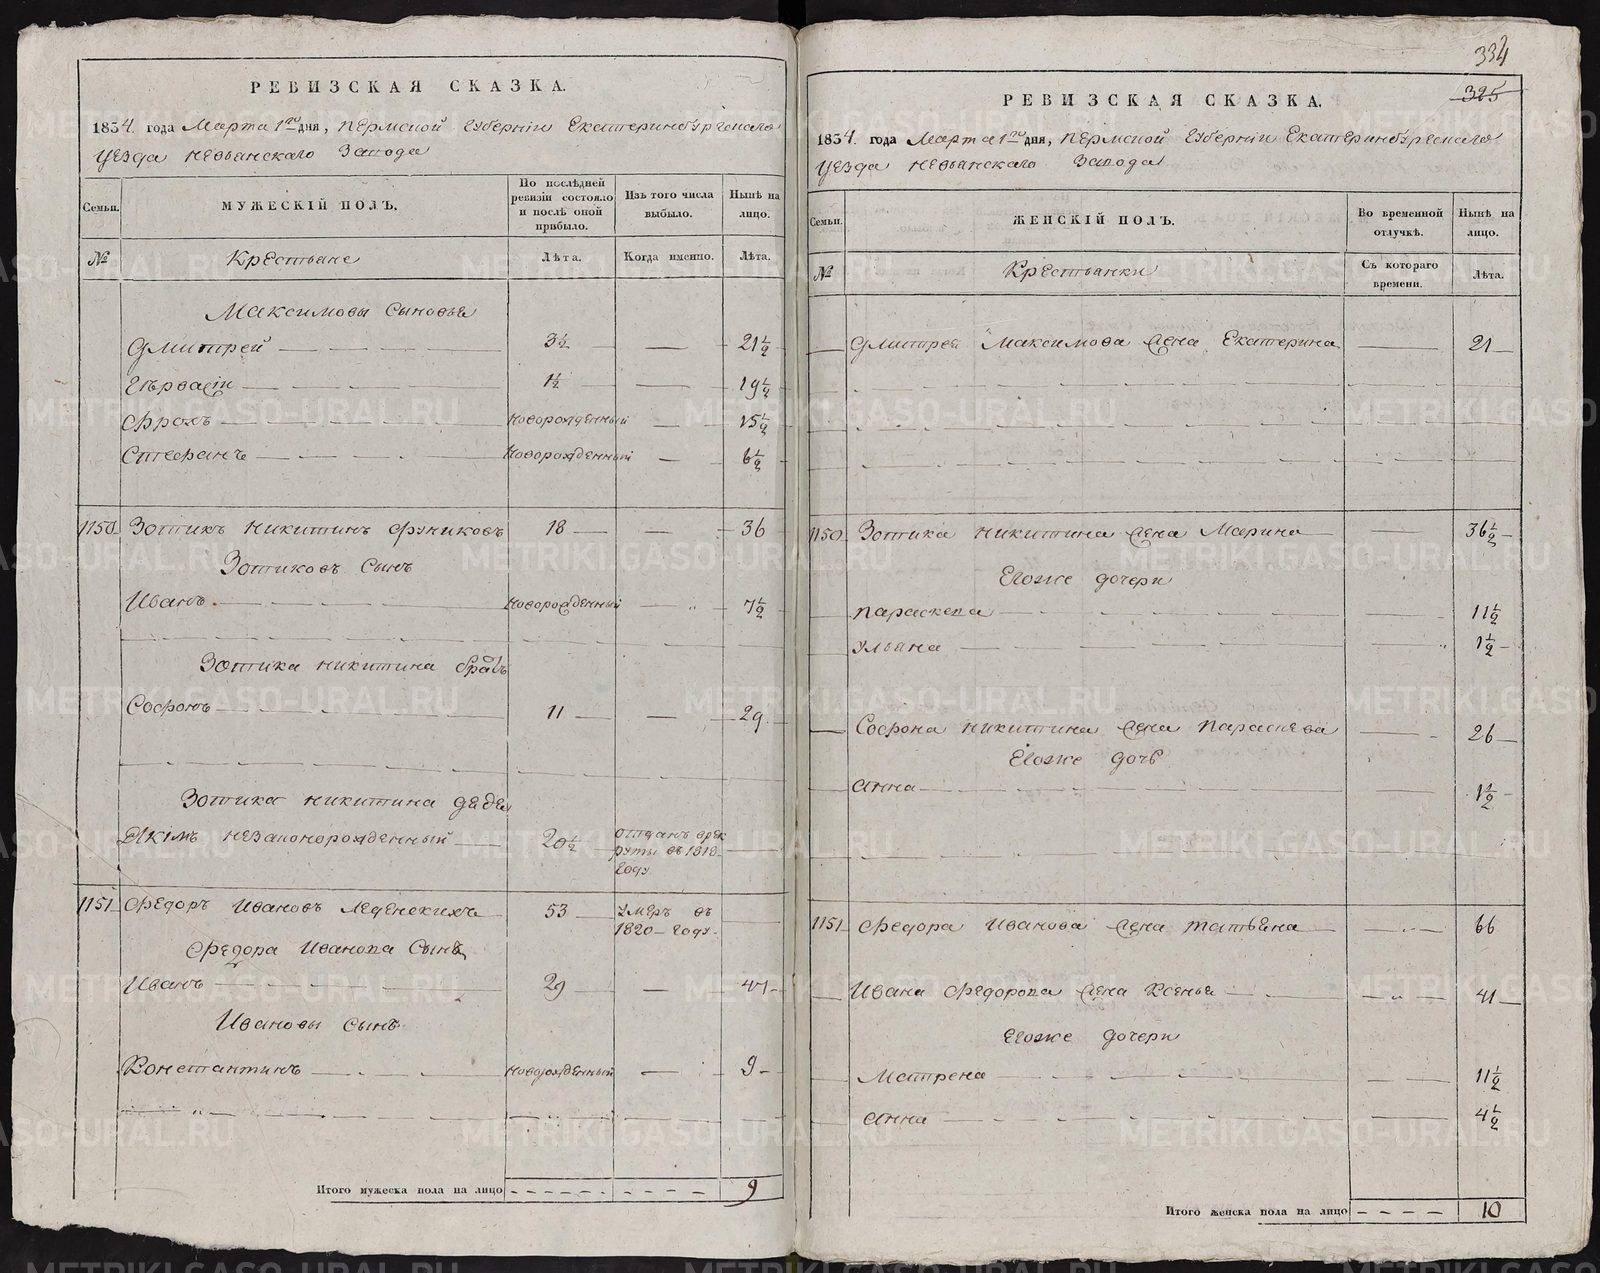 РЕВИЗСКАЯ СКАЗКА.
1834. года Марта 1го дня, Пермской Губернiи Екатеринбургскаго
Уезда Невьанскаго Завода
Семьи.
МУЖЕСКІЙ ПОЛЪ.
По послѣдней ревизіи состояло и послѣ оной прибыло.
Изъ того числа выбыло.
Нынѣ на лицо.
№
Крестьяне
Лѣта.
Когда именно.
Лѣта.
Максимовы Сыновья
Дмитрей 3½ 21½
Гѣрвасiи 1½ 19½
Фролъ новорожденный 15½
Стефанъ Новорожденный 6½
1150 Зотикъ Никитинъ Фуниковъ 18 36
Зотиковъ Сынъ
Иванъ новорожденный 7½
Зотика Никитина братъ
Софронъ 11 29
Зотика Никитина дядя
Якимъ незаконорожденный 20½ отданъ врекруты въ 1818 году
1151 Федоръ Ивановъ Леденскихъ 53 умеръ въ 1820 году.
Федора Иванова Сынъ
Иванъ 29 47
Ивановы сынъ
Констянтинъ новорожденный 9
Итого мужеска пола на лицо 9
334
325
РЕВИЗСКАЯ СКАЗКА.
1834. года Марта 1го дня, Пермской Губернiи Екатеринбургскаго
Уезда Невьанскаго Завода
Семьи.
ЖЕНСКІЙ ПОЛЪ.
Во временной отлучкѣ.
Нынѣ на лицо.
№
Крестьянки
Съ котораго времени.
Лѣта.
Дмитрея Максимова жена Екатерина 21
1150 Зотика Никитина жена Марина 36½
Егоже дочери
Параскева 11½
Ульяна 1½
Софрона Никитина жена Параскева 26
Егоже дочь
Анна 1½
1151 Федора Иванова жена Татьяна 66
Ивана Федорова жена Ксенья 41
Егоже дочери
Матрена 11½
Анна 4½
Итого женска пола на лицо 10
METRIKI.GASO-URAL.RU